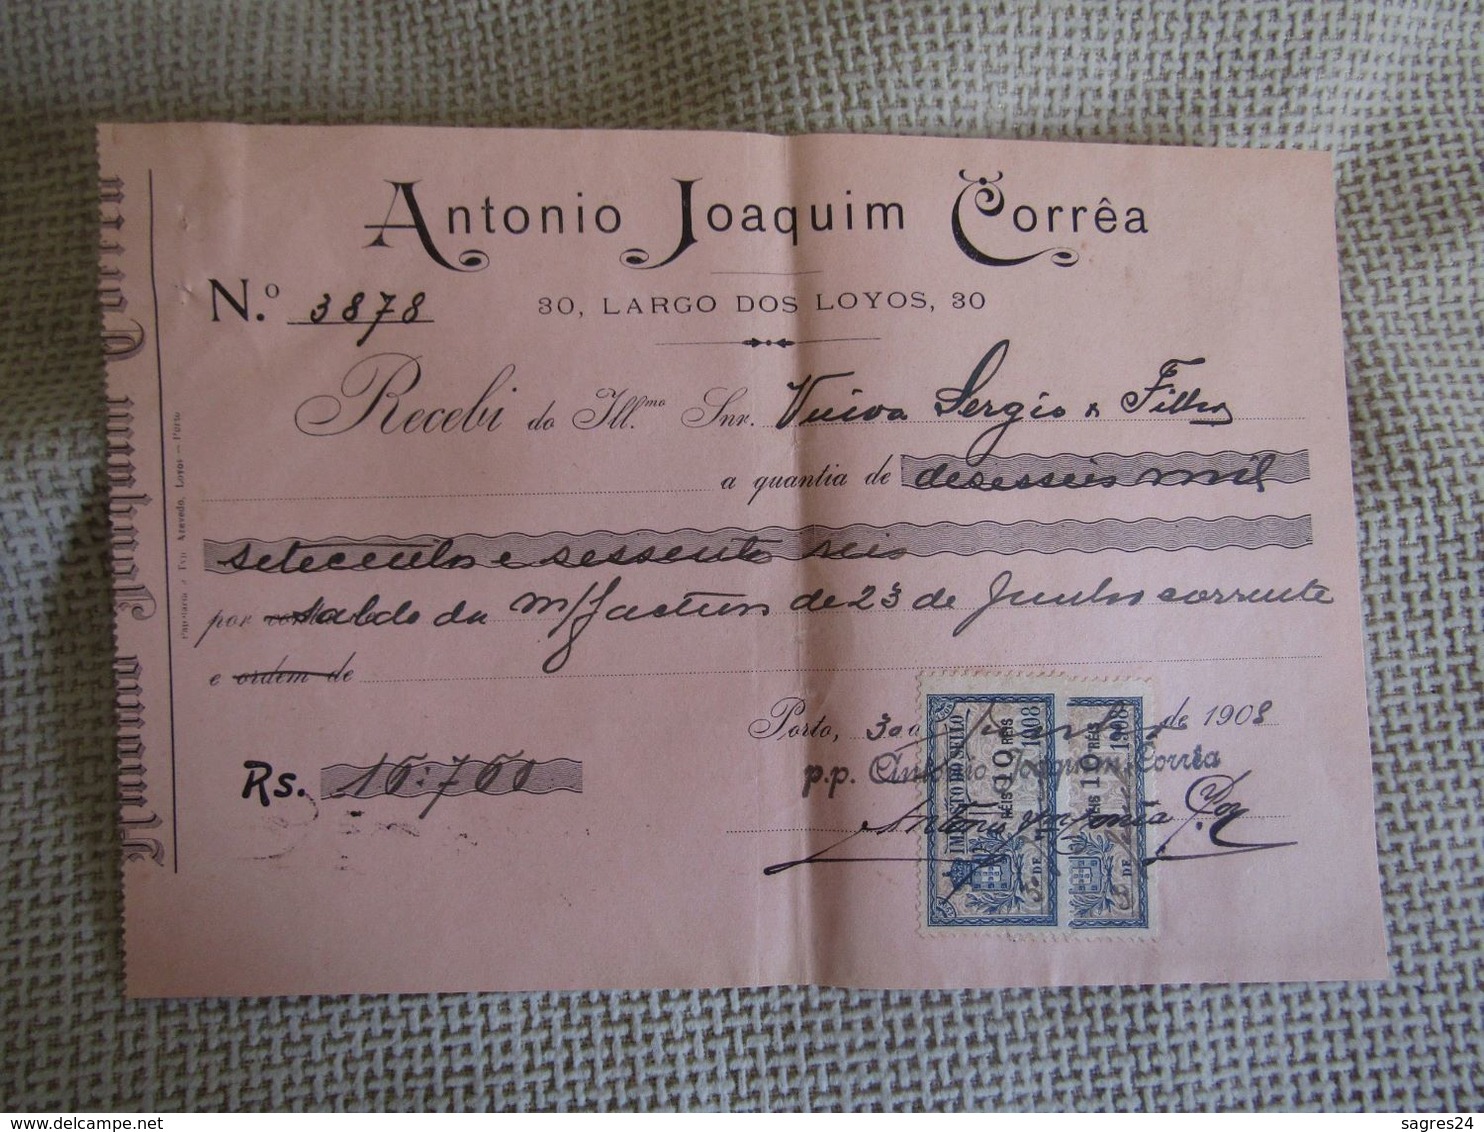 Antonio Joaquim Corrêa
N.º 3878
30, LARGO DOS LOYOS, 30
Recebi do Ill.mo Snr. Viuva Sergio & Filho
a quantia de deseseis mil
setecentos e sessenta reis
por saldo da m/factura de 23 de Junho corrente
e ordem de
Porto, 30 de Junho de 1908
Rs. 16:760
p.p. Antonio Joaquim Corrêa
Antonio
IMPOSTO DO SELLO
10 RÉIS
RÉIS 10
1908
DE
10 RÉIS
RÉIS 10
1908
DE
Antonio Joaquim Corrêa
Papelaria
Azevedo, Loyos — Porto
sagres24